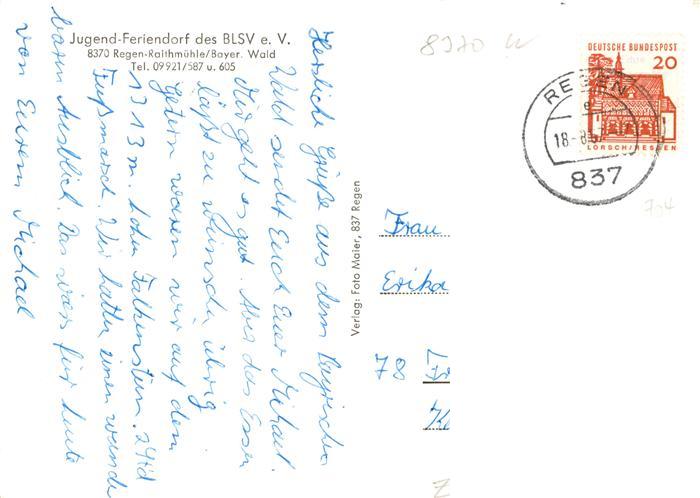 Jugend-Feriendorf des BLSV e. V.
8370 Regen-Raithmühle/Bayer. Wald
Tel. 09921/587 u. 605
Herzliche Grüße aus dem Bayrischen
Wald sendet Euch Euer Michael.
Mir geht es gut. Aber das Essen
läßt zu wünschen übrig
Gestern waren wir auf dem
1313 m. hohen Falkenstein. 2 Std
Fußmarsch. Wir hatten einen wunder
baren Ausblick. Das wärs für heute
von Eurem Michael
Verlag: Foto Maier, 837 Regen
8370
DEUTSCHE BUNDESPOST
20
LORSCH/HESSEN
REGEN
e
18-8
837
704
Frau
Erika
78
Z